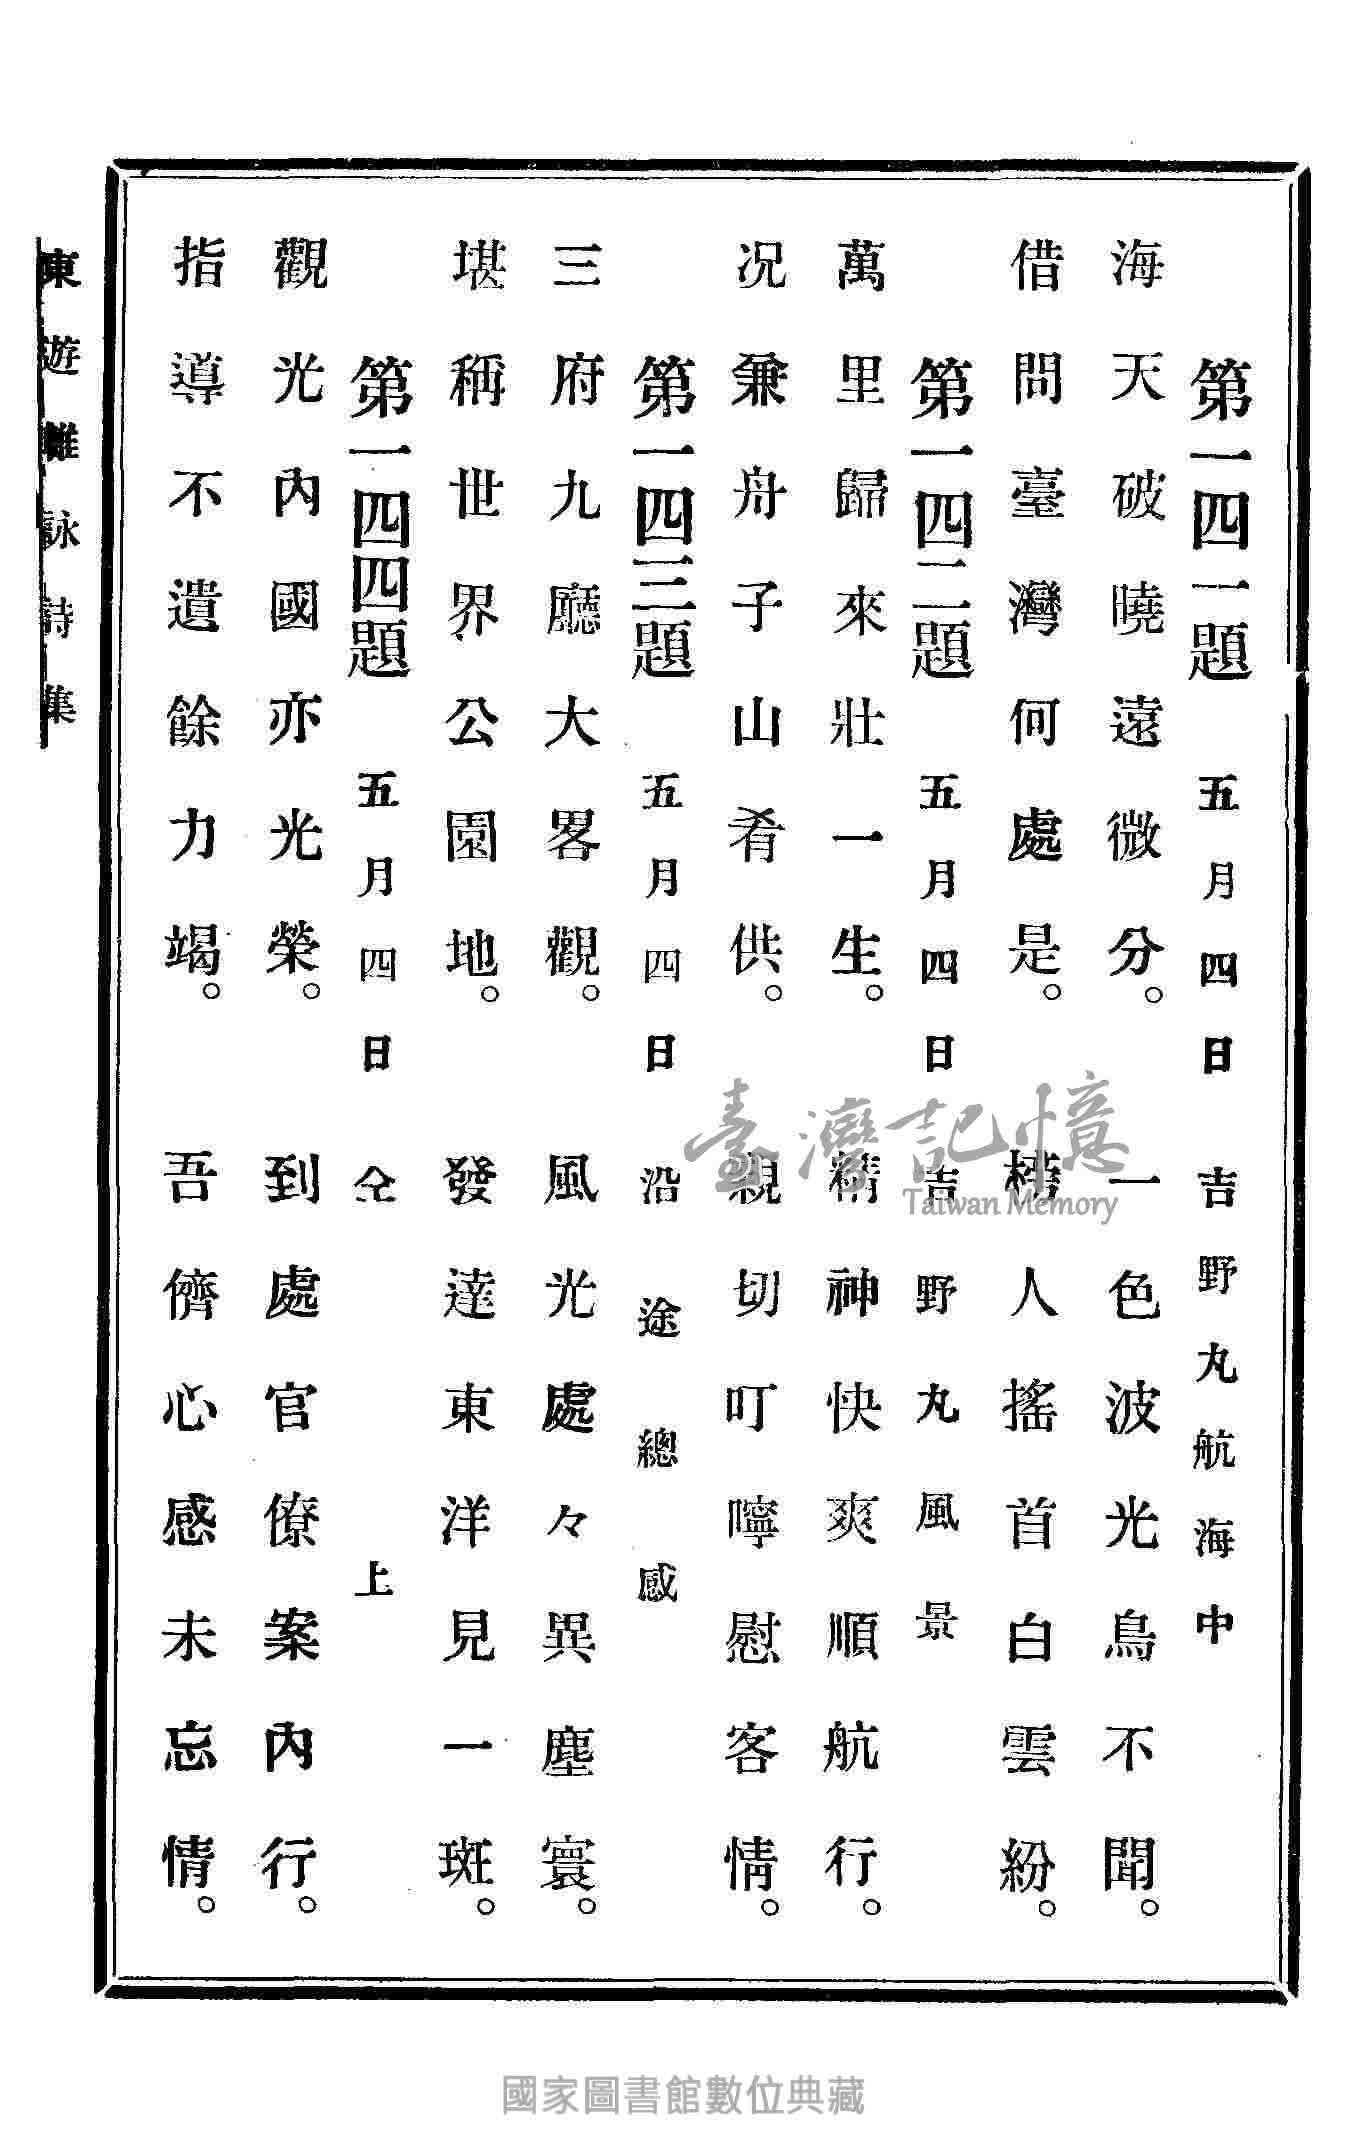 第一四一題　五月四日　吉野丸航海中
海天破曉遠微分。　一色波光鳥不聞。
借問臺灣何處是。　榜人搖首白雲紛。
第一四二題　五月四日　吉野丸風景
萬里歸來壯一生。　精神快爽順航行。
況兼舟子山肴供。　親切叮嚀慰客情。
第一四三題　五月四日　沿途總感
三府九廳大畧觀。　風光處々異塵寰。
堪稱世界公園地。　發達東洋見一斑。
第一四四題　五月四日　仝上
觀光內國亦光榮。　到處官僚案內行。
指導不遺餘力竭。　吾儕心感未忘情。
東遊雜詠詩集
臺灣記憶
Taiwan Memory
國家圖書館數位典藏